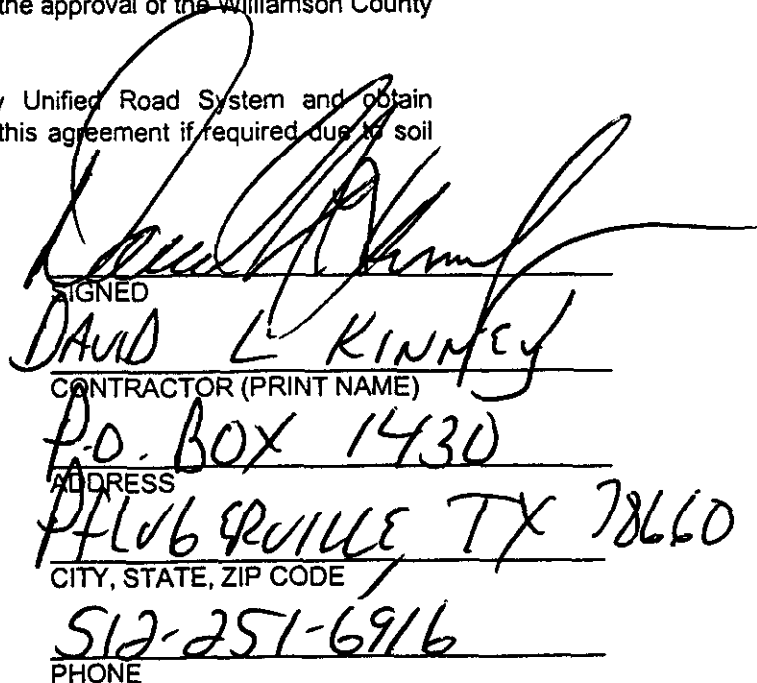 the approval of the Williamson County
Unified Road System and obtain
this agreement if required due to soil
SIGNED
DAVID L KINNEY
CONTRACTOR (PRINT NAME)
P.O. BOX 1430
ADDRESS
PFLUGERVILLE, TX 78660
CITY, STATE, ZIP CODE
512-251-6916
PHONE